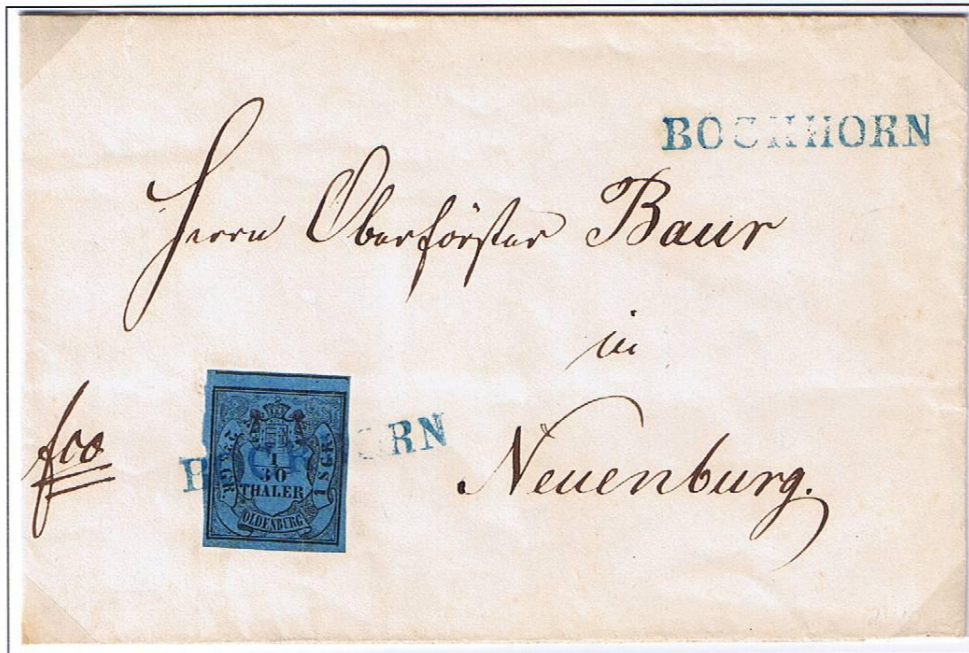 BOCKHORN
Herrn Oberförster Baur
in
Neuenburg.
fco
1
30
THALER
OLDENBURG
1 SGR.